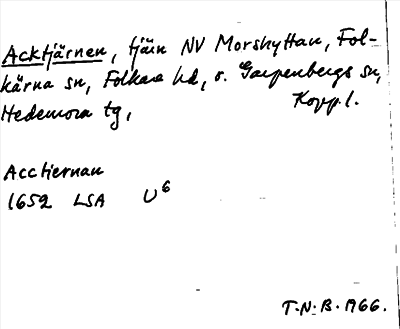 Acktjärnen, tjärn NV Morshyttan, Fol-
kärna sn, Folkare hd, o. Garpenbergs sn,
Hedemora tg, Kopp.l.
Acctiernan
1652 LSA U6
T.N.B. 1966.